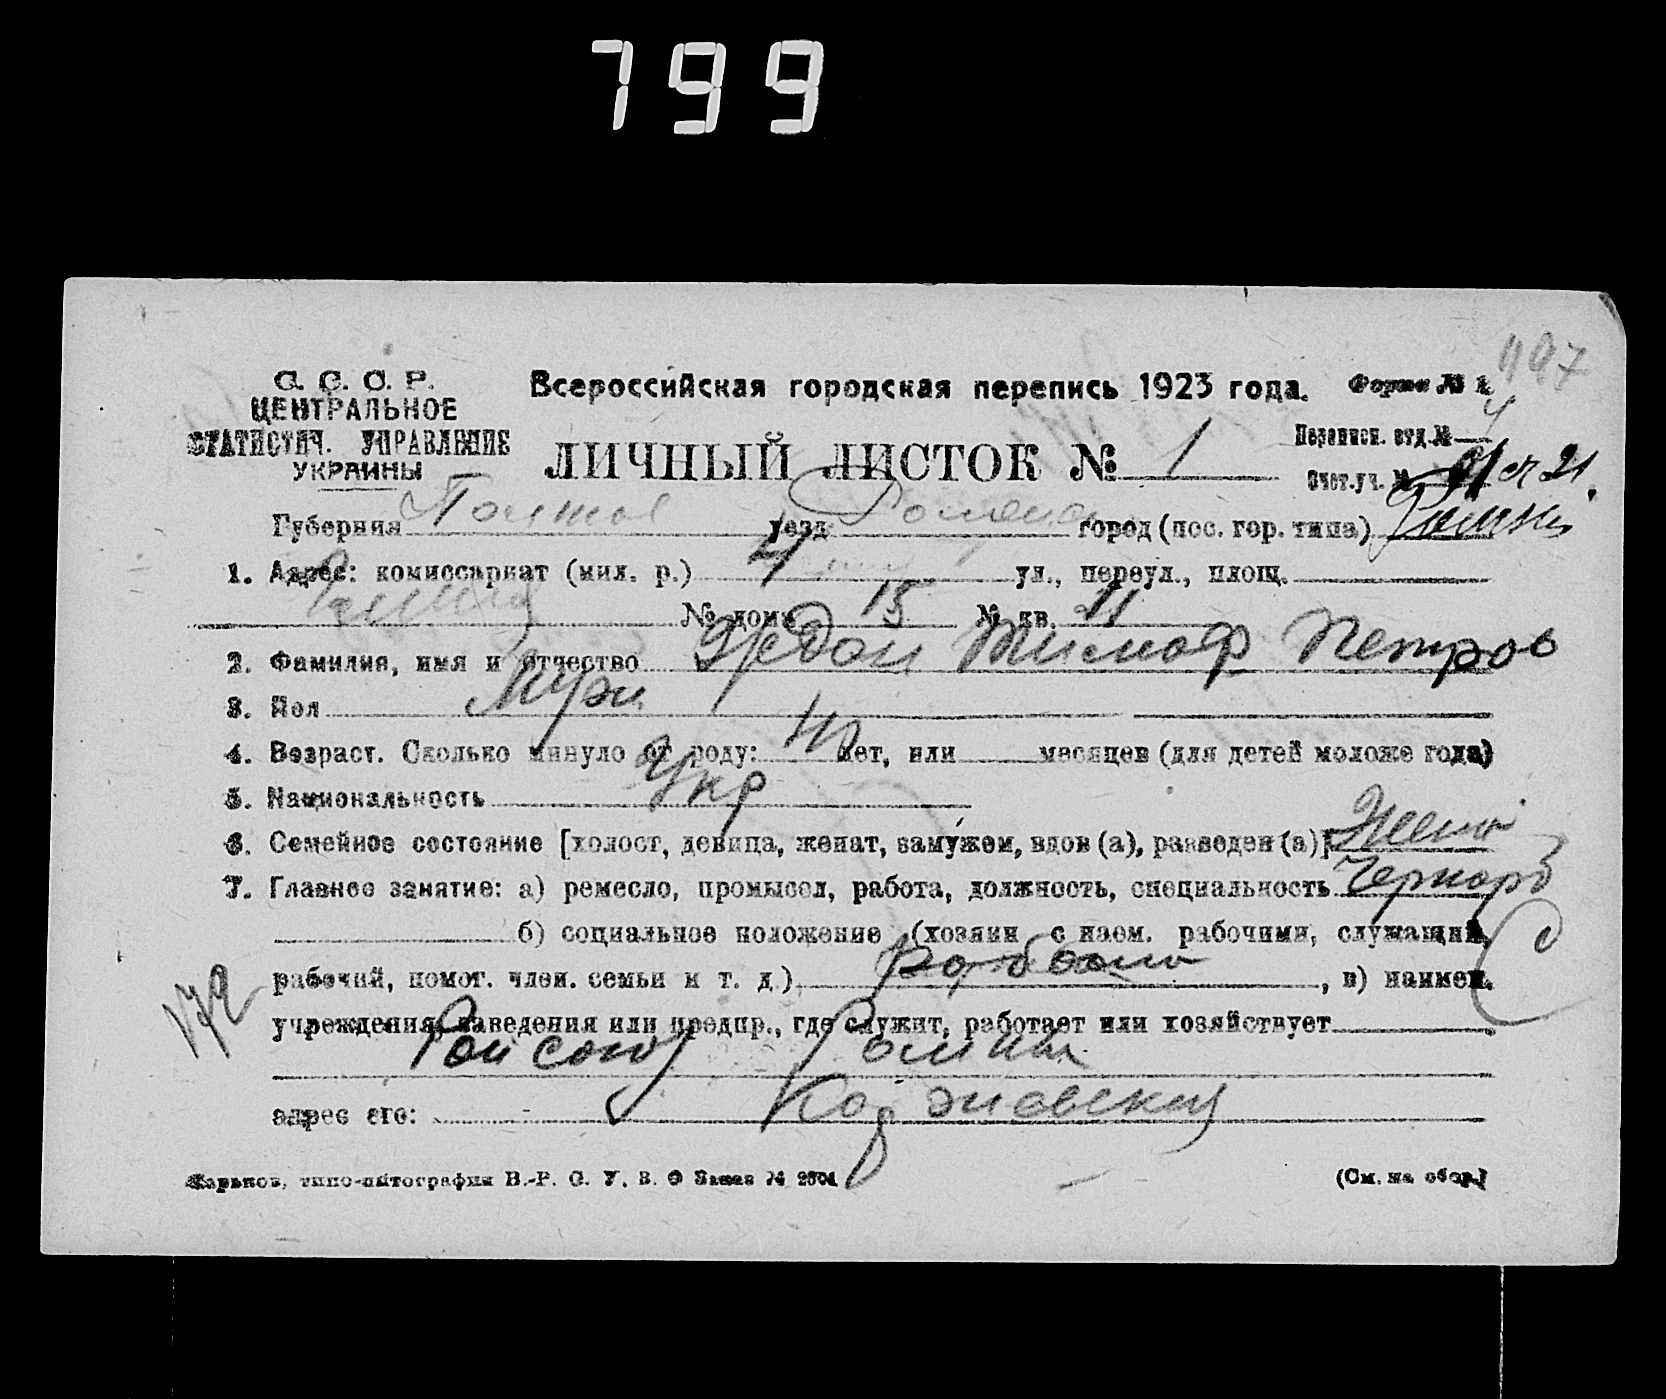 799
497
С. С. С. Р.
ЦЕНТРАЛЬНОЕ
СТАТИСТИЧ. УПРАВЛЕНИЕ
УКРАИНЫ
Всероссийская городская перепись 1923 года.
Форма № 1
ЛИЧНЫЙ ЛИСТОК № 1
Переписн. отд. № 4
Счет. уч. №
Губерния Полтав уезд Роменск город (пос. гор. типа) Ромны
1. Адрес: комиссариат (мил. р.) 4 ул., переул., площ.
№ дома 15 № кв. 11
2. Фамилия, имя и отчество Тимоф Петров
3. Пол Муж
4. Возраст. Сколько минуло от роду: лет, или месяцев (для детей моложе года)
5. Национальность Укр
6. Семейное состояние [холост, девица, женат, замужем, вдов (а), разведен (а)] Жена
7. Главное занятие: а) ремесло, промысел, работа, должность, специальность
б) социальное положение (хозяин с наем. рабочими, служащий, С
рабочий, помог. член. семьи и т. д.) , в) наимен.
учреждения, заведения или предпр., где служит, работает или хозяйствует
Райсоюз Ромны
адрес его:
Харьков, типо-литография В.-Р. С. У. В. О Заказ №
(См. на обор.)